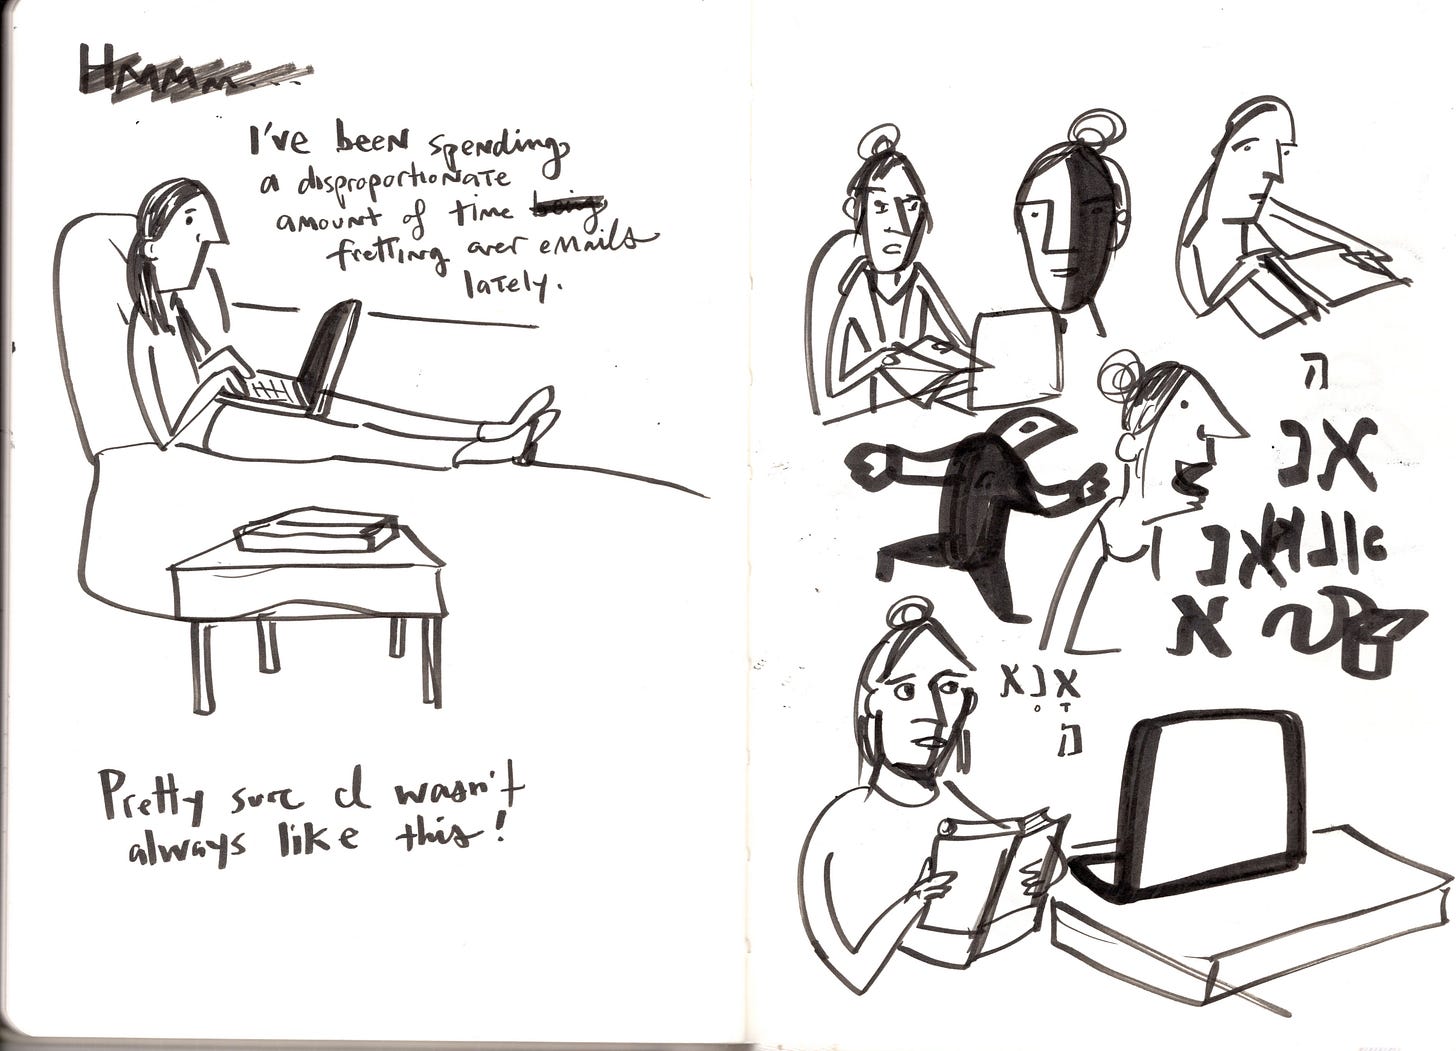 Hmmm...
I've been spending
a disproportionate
amount of time being
fretting over emails
lately.
Pretty sure I wasn't
always like this!
ה
אנ
א
אנא
ה